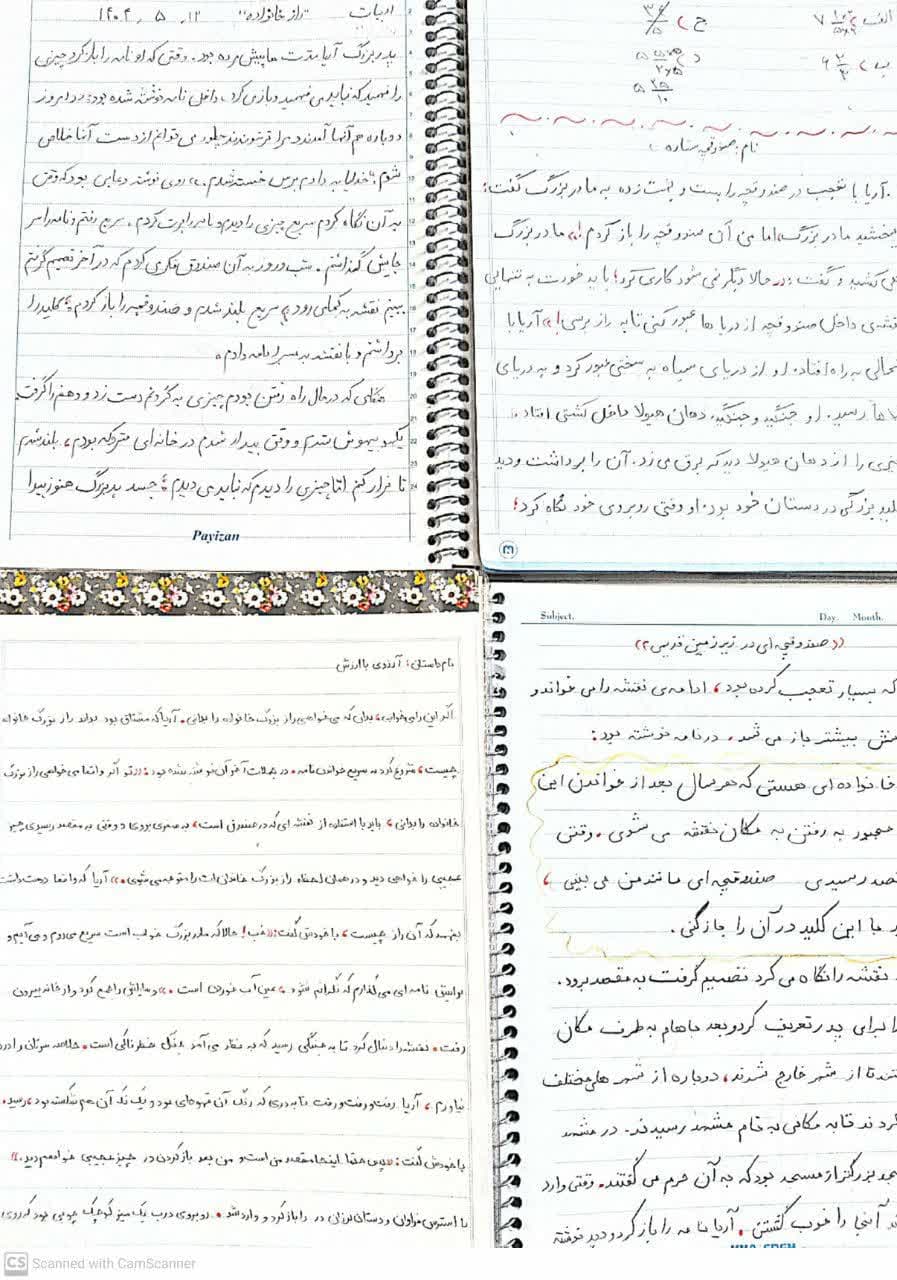 ادبیات "راز خانواده" ۱۴۰۴, ۵, ۱۲
پدربزرگ آریا مدت ها پیش مرده بود. وقتی که او نامه را باز کرد چیزی
را فهمید که نباید می فهمید و بازی کرد، داخل نامه نوشته شده بود: «امروز
دوباره هم آنها آمدند مرا ترسوندند چطور می توانم از دست آنا خلاص
شوم؟ خدایا به دادم برس خسته شدم.» روی نوشته دعایی بود که وقتی
به آن نگاه کردم سریع چیزی را دیدم و نامه را پرت کردم. سریع رفتم و نامه را سر
جایش گذاشتم. شب و روز به آن صندوق فکر می کردم که در آخر تصمیم گرفتم
ببینم نقشه به کجا می رود؛ سریع بلند شدم و صندوقچه را باز کردم؛ کلید را
برداشتم و با نقشه به مسیر ادامه دادم.
هنگامی که در حال راه رفتن بودم چیزی به گردنم دست زد و دهنم را گرفت
یکهو بیهوش شدم و وقتی بیدار شدم در خانه ای متروکه بودم، بلند شدم
تا فرار کنم اما چیزی را دیدم که نباید می دیدم؛ جسد پدربزرگ هنوز پیدا
Payizan
الف)
ب)
ج)
د)
نام: صندوقچه ستاره
آریا با تعجب در صندوقچه را بست و بهت زده به مادربزرگ گفت:
ببخشید مادربزرگ، اما من آن صندوقچه را باز کردم!» مادربزرگ
کشید و گفت: «حالا دیگر نمی شود کاری کرد؛ باید خودت به تنهایی
نقشه ی داخل صندوقچه از دریا ها عبور کنی تا به راز برسی!» آریا با
به راه افتاد. او از دریای سیاه به سختی عبور کرد و به دریای
ها رسید. او جنگید و جنگید. دهان هیولا داخل کشتی افتاد.
چیزی را از دهان هیولا دید که برق می زد. آن را برداشت و دید
کلید بزرگی در دستان خود بود. او وقتی روبروی خود نگاه کرد؛
نام داستان: آرزوی با ارزش
اگر این را می خوانی، بدان که می خواهی راز بزرگ خانواده را بدانی. آریا که مشتاق بود بداند راز بزرگ خانواده
چیست، شروع کرد به سریع خواندن نامه. در جملات آخر آن نوشته شده بود: «تو اگر واقعا می خواهی راز بزرگ
خانواده را بدانی، باید با استفاده از نقشه ای که در صندوق است، به سفری بروی و وقتی به مقصد رسیدی چیز
عجیبی را خواهی دید و در همان لحظه راز بزرگ خاندان ات را متوجه می شوی.» آریا که واقعا دوست داشت
بفهمد که آن راز چیست، با خودش گفت: «خب! حالا که مادربزرگ خواب است سریع می روم و می آیم و
برایش نامه ای می گذارم که نگرانم نشود.» وسایلش را جمع کرد و از خانه بیرون
رفت. نقشه را دنبال کرد تا به جنگلی رسید که به نظر می آمد جنگل خطرناکی است. خلاصه سرتان را درد
نیاورم، آریا رفت و رفت و رفت تا به دری که رنگ آن قهوه ای بود و یک تکه آن هم شکسته بود، رسید.
با خودش گفت: «پس حتما اینجا مقصد من است و من بعد باز کردن در چیز عجیبی خواهم دید.»
با استرس فراوان و دستان لرزان در را باز کرد و وارد شد. روبروی درب یک میز کوچک چوبی بود که روی
Subject. Day. Month.
((صندوقچه ای در زیرزمین قدیمی ۲))
که بسیار تعجب کرده بود، ادامه ی نقشه را می خواند و
بیشتر باز می شد. در نامه نوشته بود:
خانواده ای هستی که هر سال بعد از خواندن این
مجبور به رفتن به مکان نقشه می شوی. وقتی
مقصد رسیدی صندوقچه ای مانند من می بینی،
با این کلید در آن را باز کنی.
نقشه را نگاه می کرد تصمیم گرفت به مقصد برود.
را برای پدر تعریف کرد و بعد باهام به طرف مکان
تا از شهر خارج شدند، دوباره از شهر های مختلف
کردند تا به مکانی به نام مشهد رسیدند. در مشهد
بزرگتر از مسجد بود که به آن حرم می گفتند. وقتی وارد
آنجا را خوب گشتن. آریا نامه را باز کرد و دید نوشته
CS Scanned with CamScanner